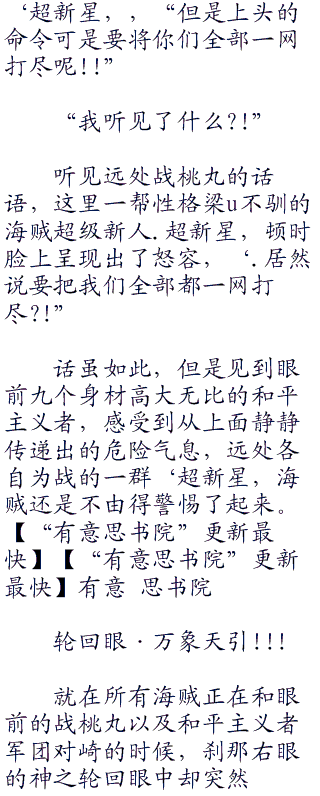 ‘超新星，，“但是上头的
命令可是要将你们全部一网
打尽呢!!”
“我听见了什么?!”
听见远处战桃丸的话
语，这里一帮性格梁u不驯的
海贼超级新人.超新星，顿时
脸上呈现出了怒容，‘.居然
说要把我们全部都一网打
尽?!”
话虽如此，但是见到眼
前九个身材高大无比的和平
主义者，感受到从上面静静
传递出的危险气息，远处各
自为战的一群‘超新星，海
贼还是不由得警惕了起来。
【“有意思书院”更新最
快】【“有意思书院”更新
最快】有意 思书院
轮回眼·万象天引!!!
就在所有海贼正在和眼
前的战桃丸以及和平主义者
军团对峙的时候，刹那右眼
的神之轮回眼中却突然